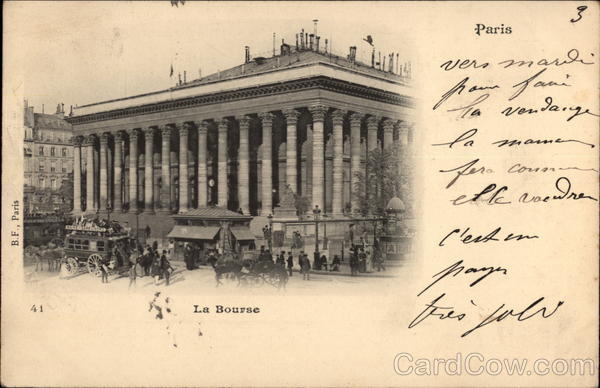 3
Paris
vers mardi
pour faire
la vendange
la maman
fera comme
elle voudra
c'est un
pays
très joli
B.F., Paris
41
La Bourse
CardCow.com